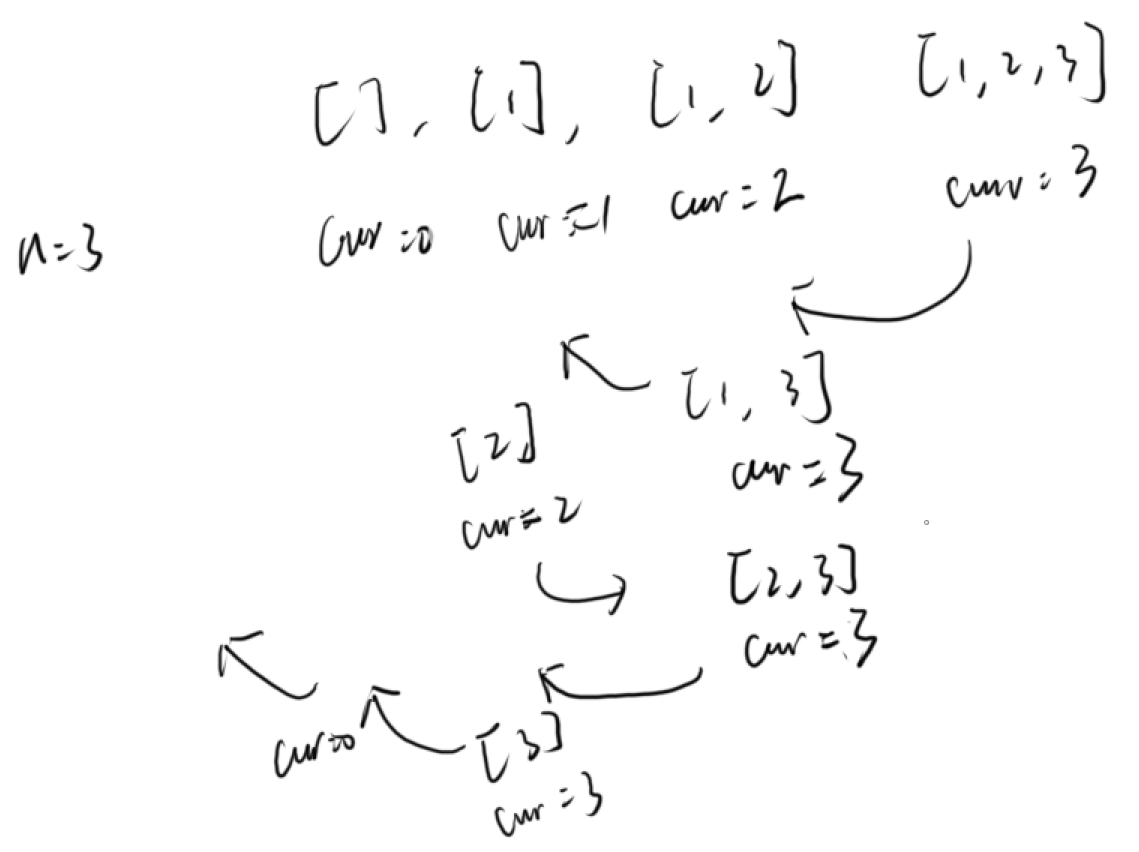 [], [1], [1, 2] [1, 2, 3]
n=3 cur=0 cur=1 cur=2 cur=3
[1, 3]
cur=3
[2]
cur=2
[2, 3]
cur=3
[3]
cur=0
cur=3